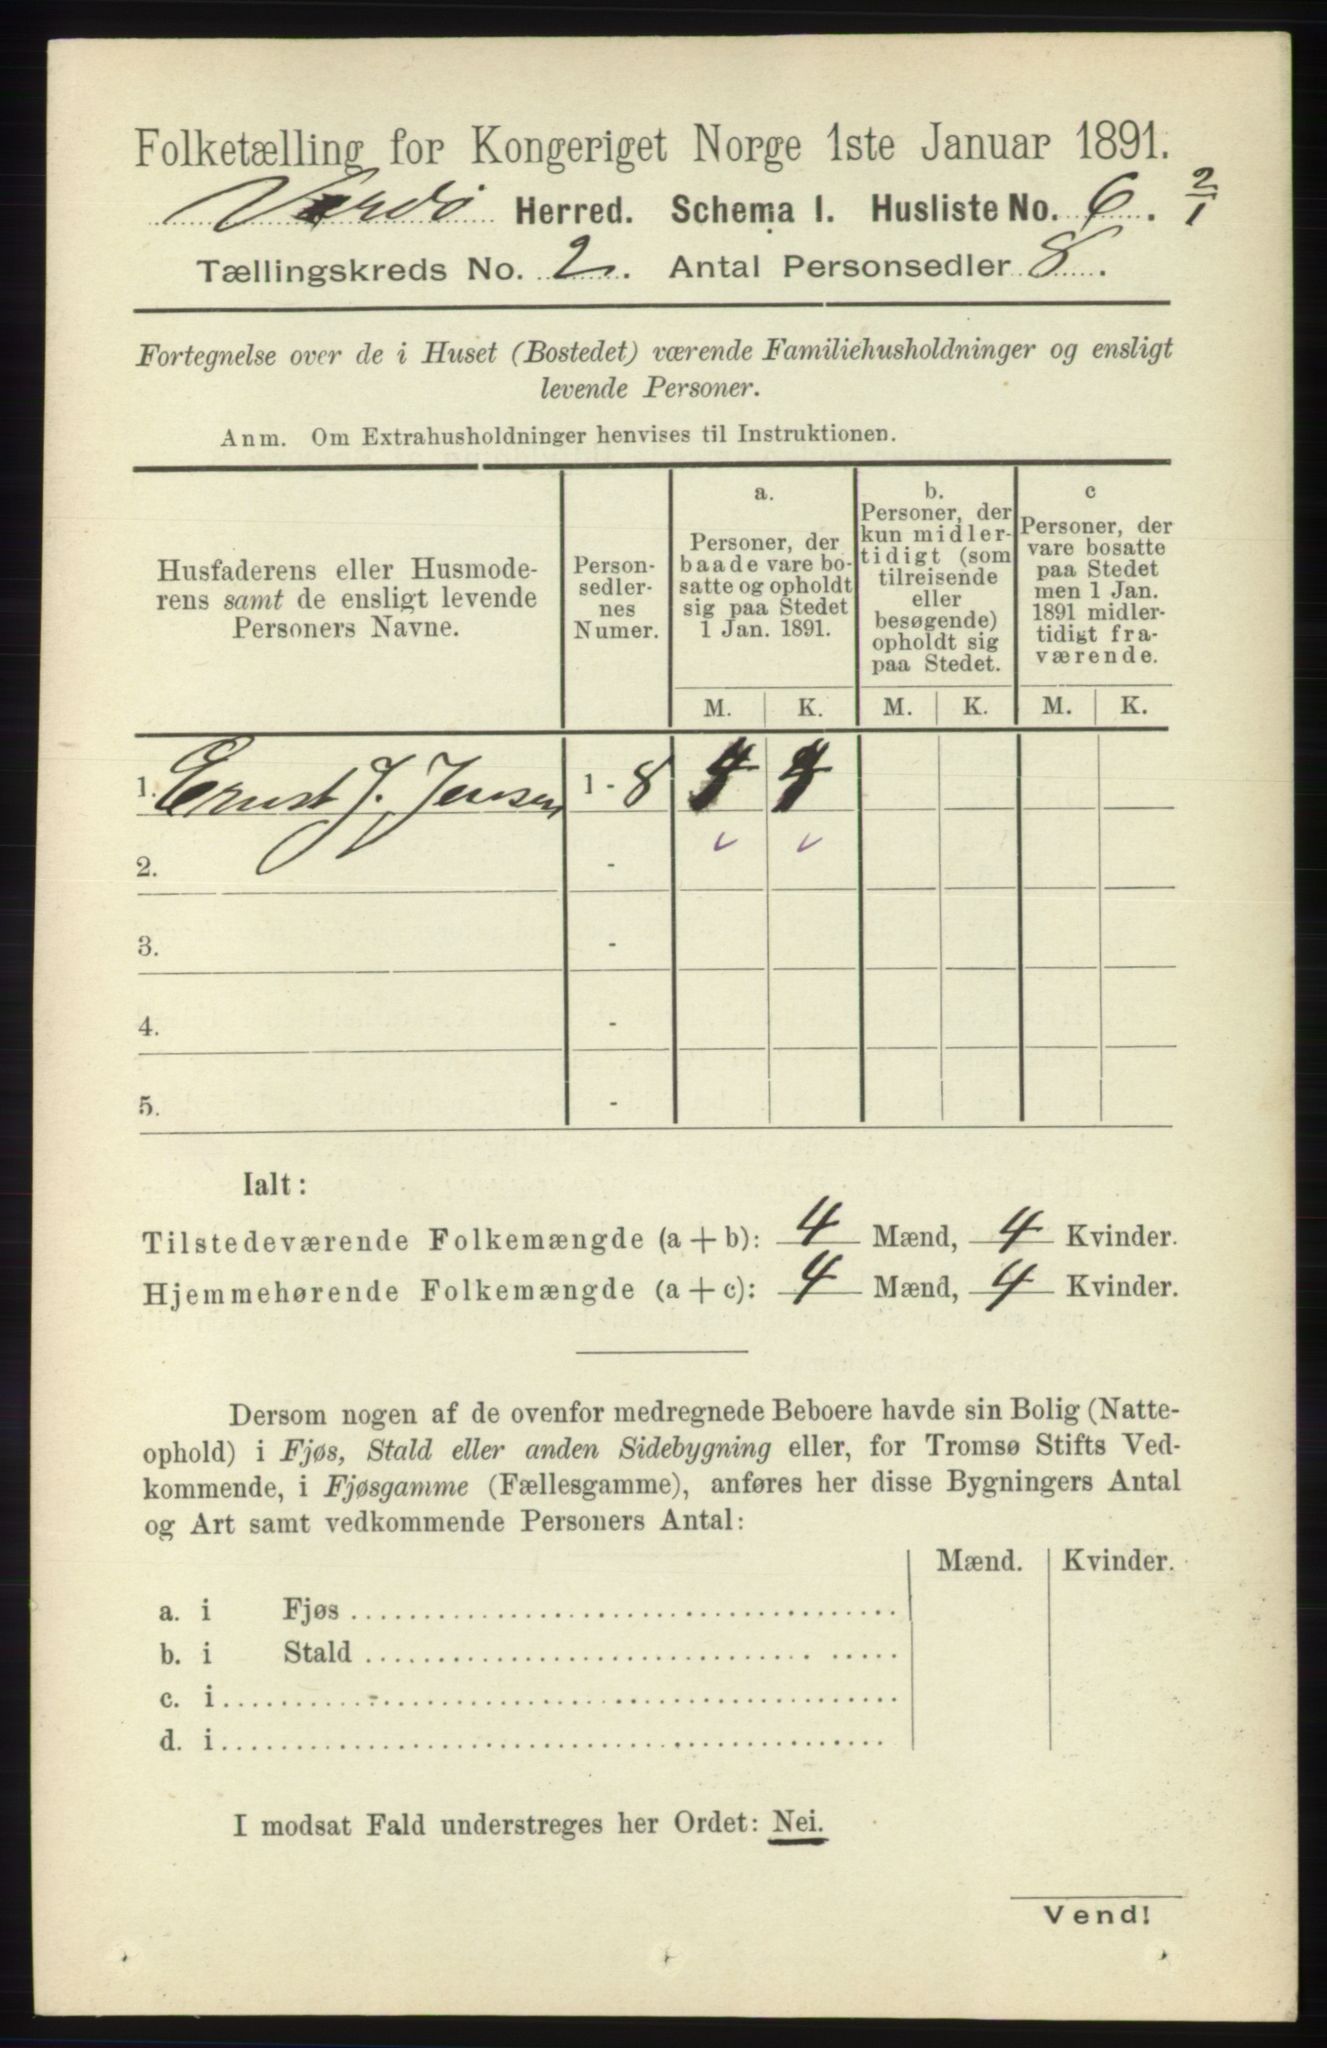 Folketælling for Kongeriget Norge 1ste Januar 1891.
Vardö Herred. Schema I. Husliste No. 6. 2/1
Tællingskreds No. 2. Antal Personsedler 8.
Fortegnelse over de i Huset (Bostedet) værende Familiehusholdninger og ensligt
levende Personer.
Anm. Om Extrahusholdninger henvises til Instruktionen.
Husfaderens eller Husmode-
rens samt de ensligt levende
Personers Navne.
Person-
sedler-
nes
Numer.
a.
Personer, der
baade vare bo-
satte og opholdt
sig paa Stedet
1 Jan. 1891.
b.
Personer, der
kun midler-
tidigt (som
tilreisende
eller
besøgende)
opholdt sig
paa Stedet.
c
Personer, der
vare bosatte
paa Stedet
men 1 Jan.
1891 midler-
tidigt fra-
værende.
M. K. M. K. M. K.
1. Ernst J. Jensen 1 - 8 4 4
2. -
3. -
4. -
5. -
Ialt:
Tilstedeværende Folkemængde (a + b): 4 Mænd, 4 Kvinder.
Hjemmehørende Folkemængde (a + c): 4 Mænd, 4 Kvinder.
Dersom nogen af de ovenfor medregnede Beboere havde sin Bolig (Natte-
ophold) i Fjøs, Stald eller anden Sidebygning eller, for Tromsø Stifts Ved-
kommende, i Fjøsgamme (Fællesgamme), anføres her disse Bygningers Antal
og Art samt vedkommende Personers Antal:
Mænd. Kvinder.
a. i Fjøs
b. i Stald
c. i
d. i
I modsat Fald understreges her Ordet: Nei.
Vend!